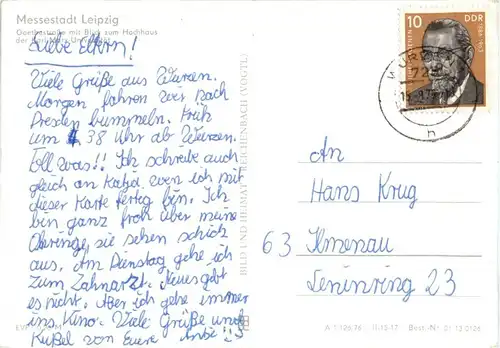 Messestadt Leipzig
Goethestraße mit Blick zum Hochhaus
der Karl-Marx-Universität
Liebe Eltern!
Viele Grüße aus Wurzen.
Morgen fahren wir nach
Dresden bummeln. Früh
um 38 Uhr ab Wurzen.
Toll was!! Ich schreibe auch
gleich an Katja, wenn ich mit
dieser Karte fertig bin. Ich
bin ganz froh über meine
Ohrringe, sie sehen schick
aus. Am Dienstag gehe ich
zum Zahnarzt. Neues gibt
es nicht. Aber ich gehe immer
ins Kino. Viele Grüße und
Kußel von Eurer
BILD UND HEIMAT REICHENBACH (VOGTL)
10 DDR
An
Hans Krug
63 Ilmenau
Leninring 23
A 1/126/76 II-15-17 Best.-Nr. 01 13 0126